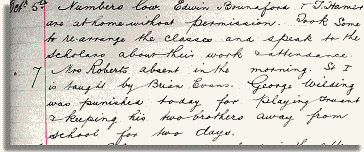 Oct 5th Numbers low. Edwin Brunsford & T. Hamer
are at home without permission. Took some
to re-arrange the classes and speak to the
scholars about their work & attendance.
" 7 Mrs Roberts absent in the morning. St I
is taught by Brian Evans. George Wilding
was punished today for playing truant
& keeping his two brothers away from
school for two days.